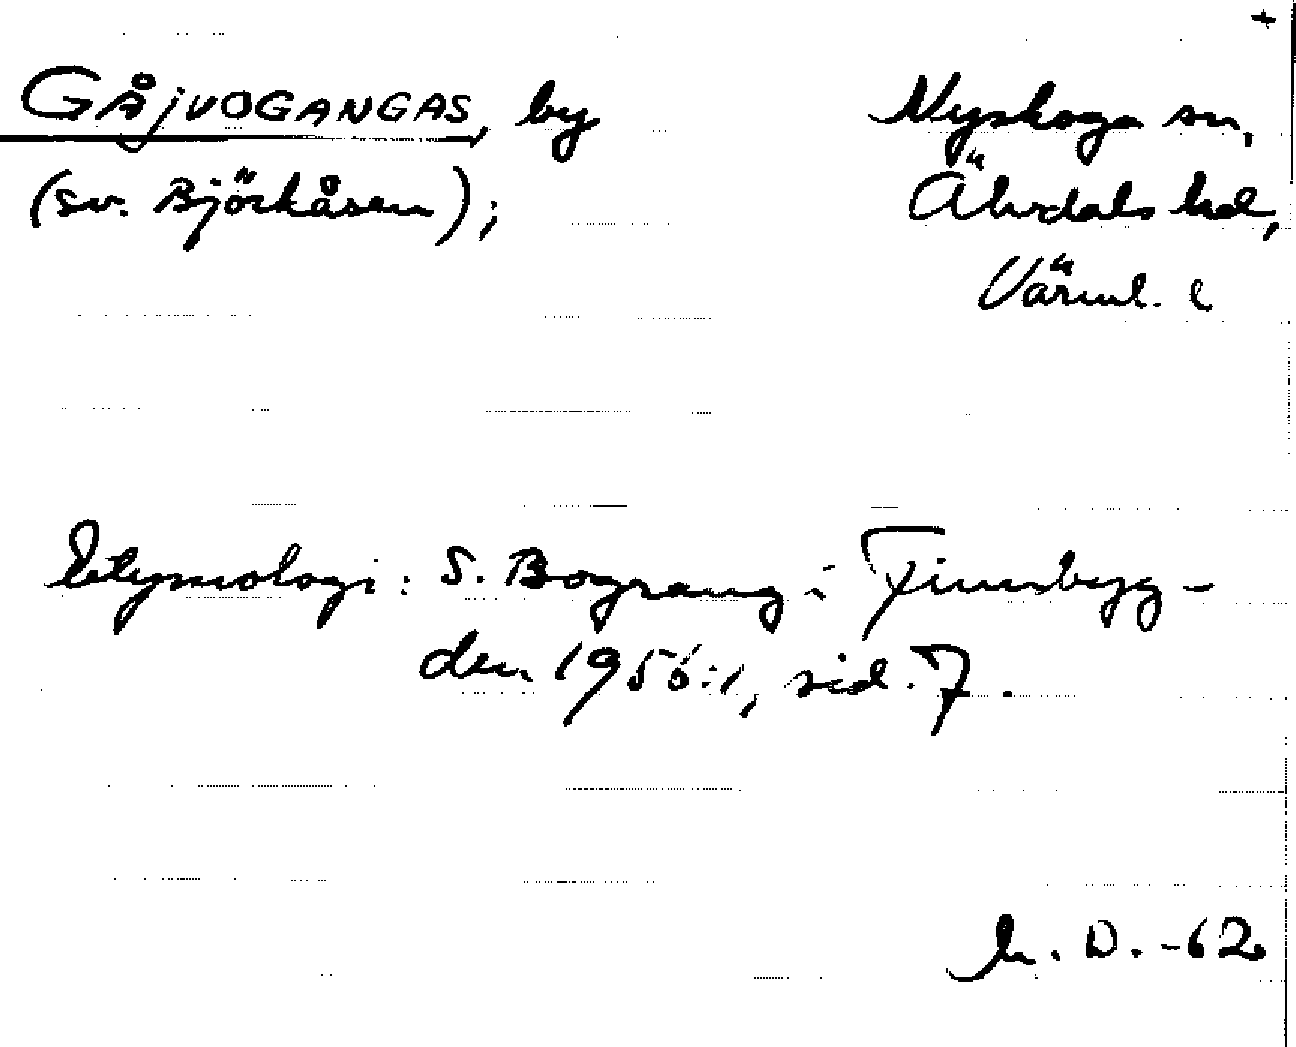 +
GÅJVOGANGAS, by
Nyskoga sn,
(sv. Björkåsen);
Älvdals hd,
Värml. l
Etymologi: S. Bograng i Finnbyg-
den 1956:1, sid. 7.
h. D. -62